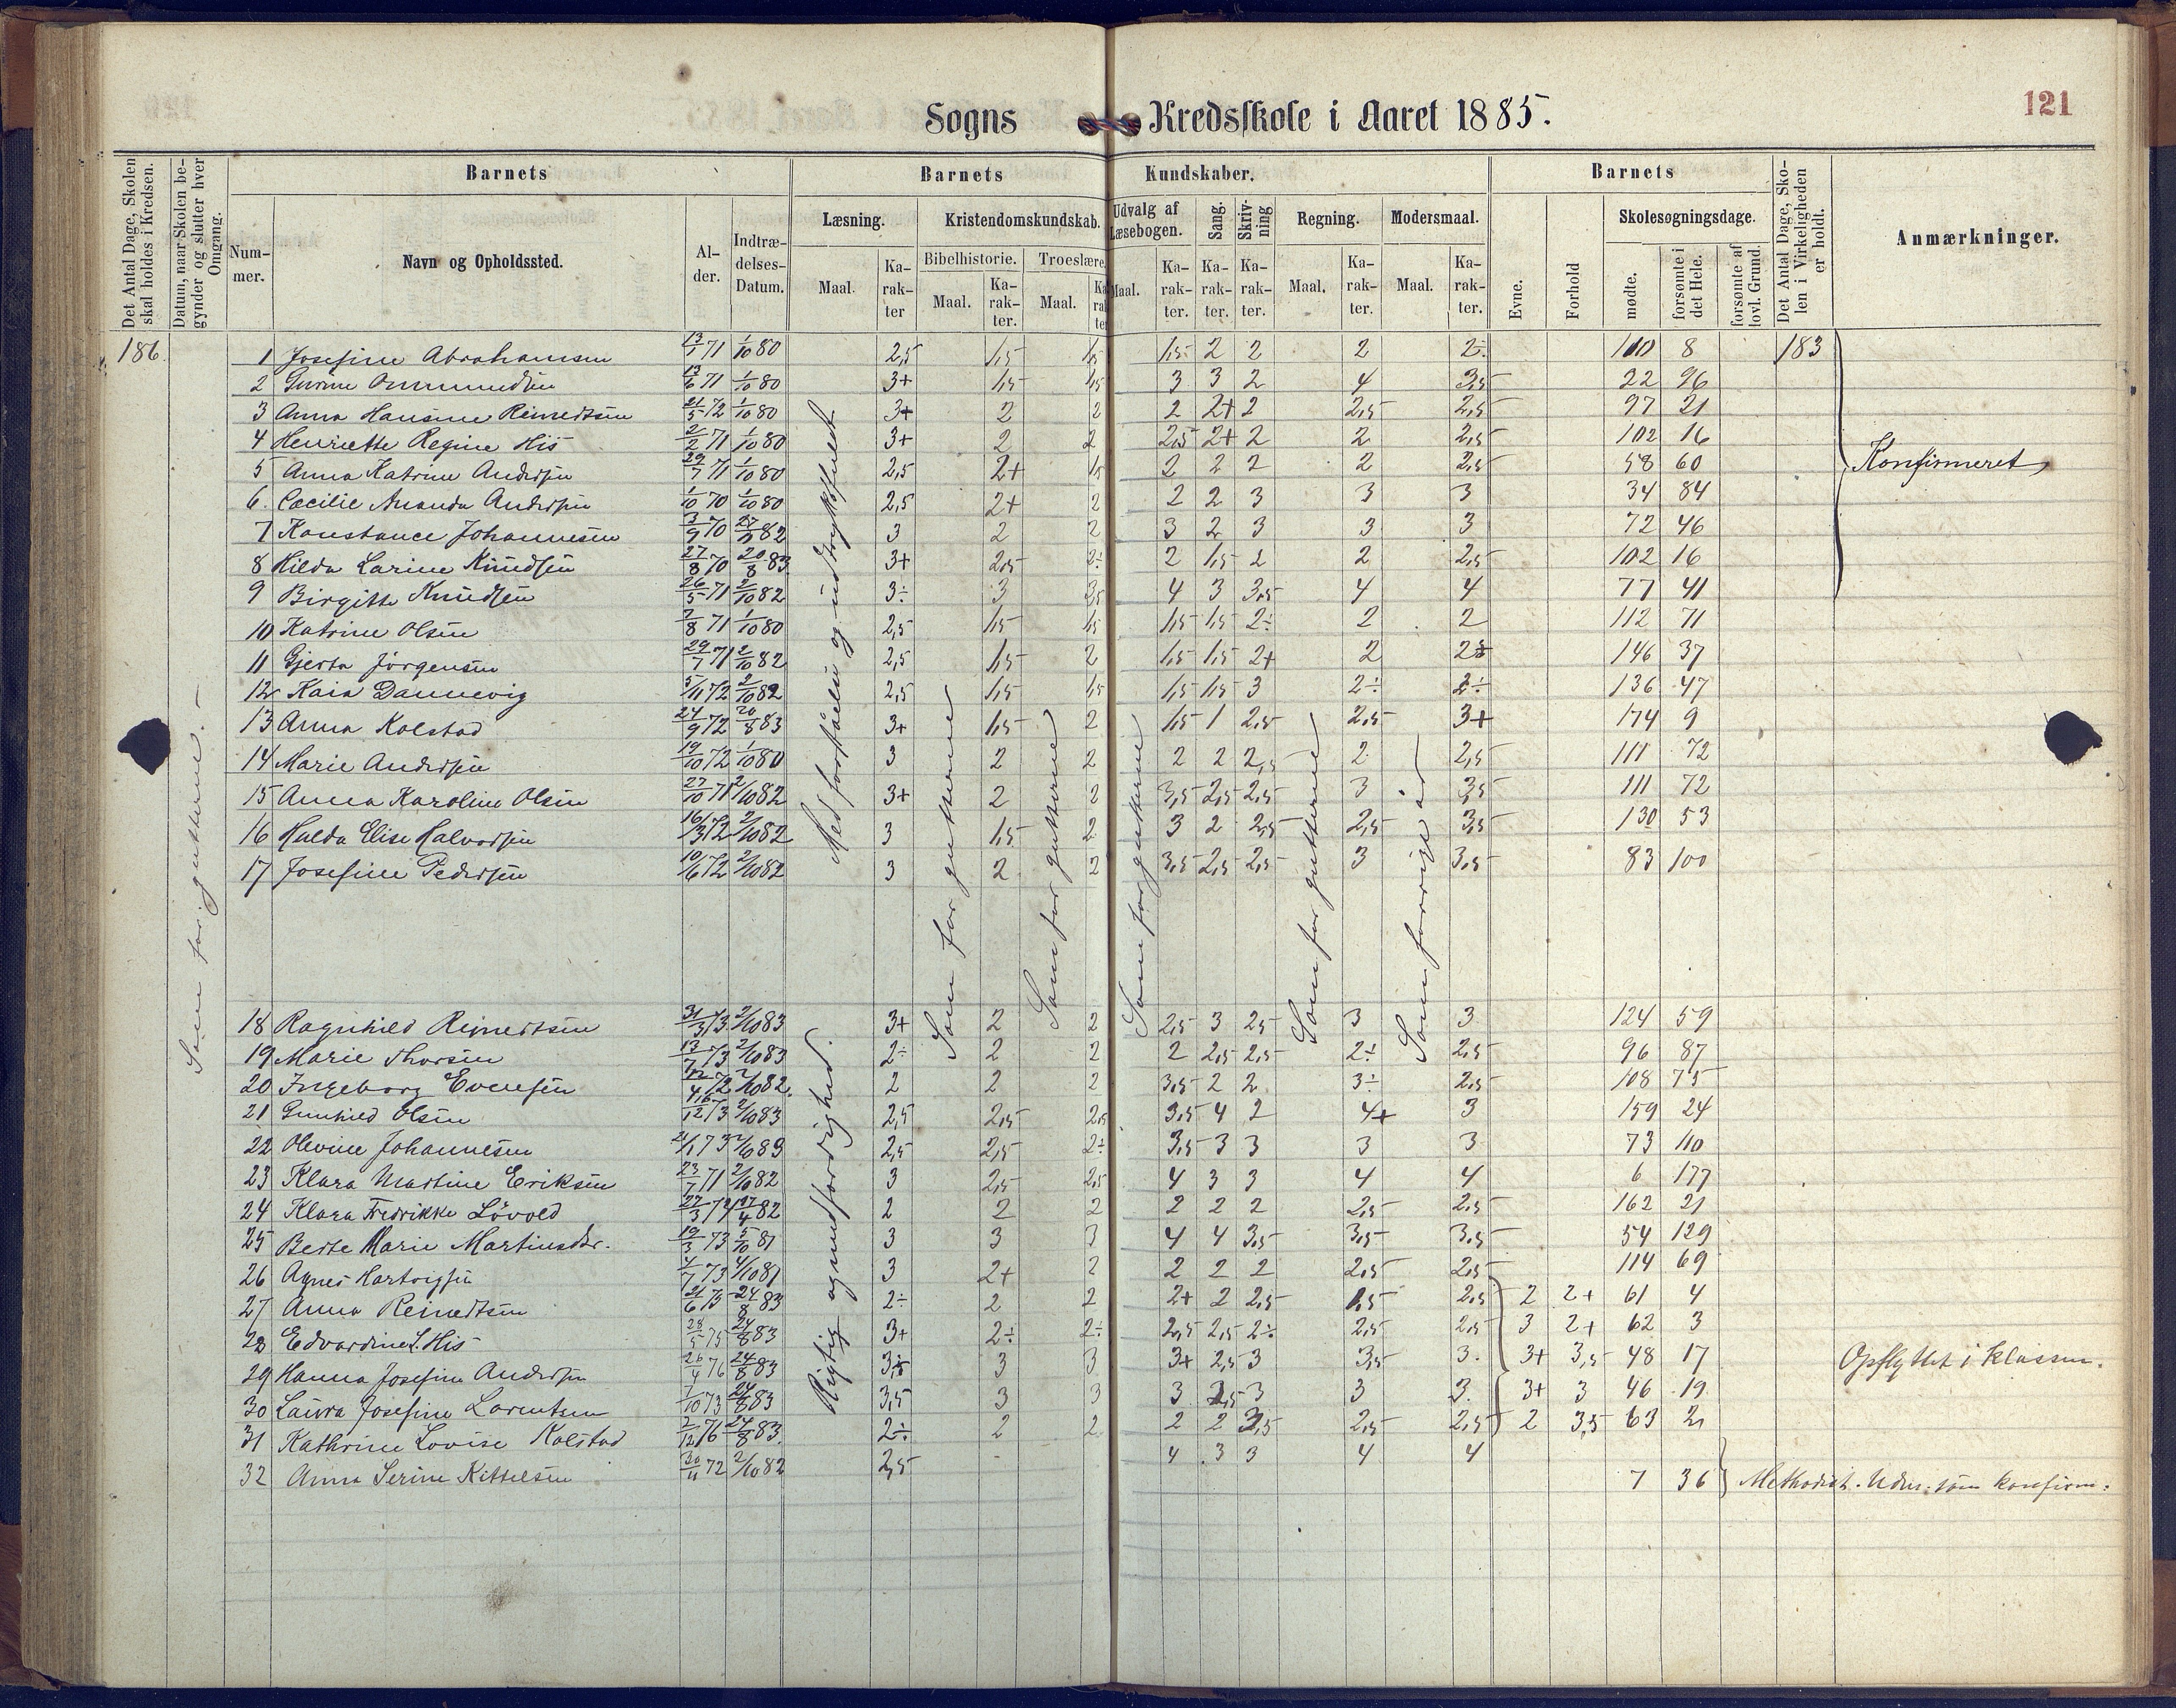 121
Sogns Kredsskole i Aaret 1885.
Det Antal Dage, Skolen skal holdes i Kredsen.
Datum, naar Skolen begynder og slutter hver Omgang.
Barnets
Barnets Kundskaber.
Barnets
Det Antal Dage, Skolen i Virkeligheden er holdt.
Anmærkninger.
Nummer.
Navn og Opholdssted.
Alder.
Indtrædelses-Datum.
Læsning.
Kristendomskundskab.
Udvalg af Læsebogen.
Sang.
Skrivning
Regning.
Modersmaal.
Evne.
Forhold
Skolesøgningsdage.
Bibelhistorie.
Troeslære.
Maal.
Karakter
Maal.
Karakter.
Maal.
Karakter
Maal.
Karakter.
Karakter.
Karakter.
Maal.
Karakter.
Maal.
Karakter.
mødte.
forsømte i det Hele.
forsømte af lovl. Grund.
186.
183
Som forrig gutterne. -
Med forståelse og udtryksfuldt
Rigtig og med færdighed.
Som for gutterne
Som for gutterne
Som for gutterne
Som for gutterne
Som forrige år
1 Josefine Abrahamsen 13/1 71 1/10 80 2,5 1,5 1,5 1,5 2 2 2 2÷ 110 8
2 Gurine Ommundsen 13/6 71 1/10 80 3+ 1,5 1,5 3 3 2 4 3,5 22 96
3 Anna Hansine Reinertsen 21/5 72 1/10 80 3+ 2 2 2 2+ 2 2,5 2,5 97 21
4 Henriette Regine His 2/2 71 1/10 80 3+ 2 2 2,5 2+ 2 2 2,5 102 16
5 Anna Katrine Andersen 29/7 71 1/10 80 2,5 2+ 1,5 2 2 2 2 2,5 58 60 Konfirmeret
6. Cæcilie Amanda Andersen 1/10 70 1/10 80 2,5 2+ 2 2 2 3 3 3 34 84
7 Konstance Johannesen 3/9 70 82 3 2 2 3 2 3 3 3 72 46
8 Hilda Larine Knudsen 27/8 70 20/8 83 3+ 2,5 2÷ 2 1,5 2 2 2,5 102 16
9 Birgitte Knudsen 26/5 71 2/10 82 3÷ 3 3,5 4 3 3,5 4 4 77 41
10 Katrine Olsen 7/8 71 1/10 80 2,5 1,5 1,5 1,5 1,5 2÷ 2 2 112 71
11 Gjerta Jörgensen 29/7 71 2/10 82 2,5 1,5 2 1,5 1,5 2+ 2 2÷ 146 37
12 Kaia Dannevig 5/11 72 2/10 82 2,5 1,5 1,5 1,5 1,5 3 2÷ 2÷ 136 47
13 Anna Kolstad 24/9 72 20/8 83 3+ 1,5 2 1,5 1 2,5 2,5 3+ 174 9
14 Marie Andersen 19/10 72 1/10 80 3 2 2 2 2 2,5 2 2,5 111 72
15 Anna Karoline Olsen 27/10 71 2/10 82 3+ 2 2 3,5 2,5 2,5 3 3,5 111 72
16 Hulda Elise Halvorsen 16/3 72 2/10 82 3 1,5 2 3 2 2,5 2,5 3,5 130 53
17 Josefine Pedersen 10/6 72 2/10 82 3 2 2 3,5 2,5 2,5 3 3,5 83 100
18 Ragnhild Reinertsen 31/3 73 2/10 83 3+ 2 2 2,5 3 2,5 3 3 124 59
19 Marie Thorsen 13/7 73 2/10 83 2÷ 2 2 2 2,5 2,5 2÷ 2,5 96 87
20 Ingeborg Evensen 12/4 72 2/10 82. 2 2 2 3,5 2 2 3÷ 2,5 108 75
21 Gunhild Olsen 16/12 73 2/10 83 2,5 2,5 2,5 3,5 4 2 4+ 3 159 24
22 Olevine Johannesen 21/1 73 2/10 83 2,5 2,5 2÷ 3,5 3 3 3 3 73 110
23 Klara Martine Eriksen 23/7 71 2/10 82 3 2,5 2,5 4 3 3 4 4 6 177
24 Klara Fredrikke Lövold 27/3 74 17/4 82 2 2 2 2 2 2 2,5 2,5 162 21
25 Berte Marie Martinsdtr. 19/3 73 5/10 81 3 3 3 4 4 3,5 3,5 3,5 54 129
26 Agnes Hartvigsen 4/7 73 4/10 81 3 2+ 2 2 2 2 2,5 2,5 114 69
27 Anna Reinertsen 21/6 75 24/8 83 2÷ 2 2 2+ 2 2,5 1,5 2,5 2 2+ 61 4
28 Edvardine L. His 28/5 75 24/8 83 3+ 2÷ 2÷ 2,5 2,5 2÷ 2,5 2,5 3 2+ 62 3
29 Hanna Josefine Andersen 26/4 76 24/8 83 3÷ 3 3 3+ 2,5 3 3,5 3. 3+ 3,5 48 17 Opflyttet i Klassen.
30 Laura Josefine Lorentsen 7/10 73 24/8 83 3,5 3 3 3 2,5 3 3 3. 3+ 3 46 19
31 Kathrine Lovise Kolstad 2/12 76 24/8 83. 2÷ 2 2 2 2 3,5 2,5 2,5 2 3,5 63 2
32 Anna Serine Kittelsen 30/11 72 2/10 82 2,5 - 4 3 3 4 4 7 36 Methodist. Udm. som konfirm: